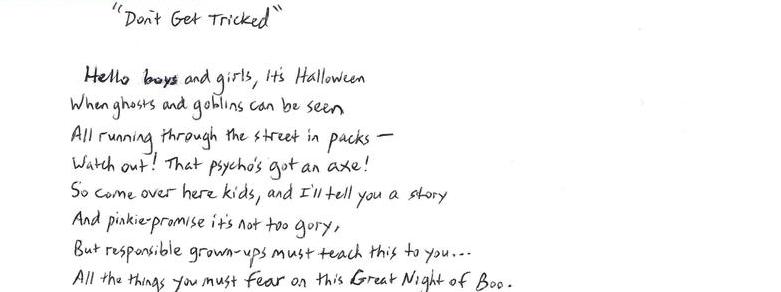 "Don't Get Tricked"
Hello boys and girls, It's Halloween
When ghosts and goblins can be seen
All running through the street in packs —
Watch out! That psycho's got an axe!
So come over here kids, and I'll tell you a story
And pinkie-promise it's not too gory,
But responsible grown-ups must teach this to you...
All the things you must fear on this Great Night of Boo.